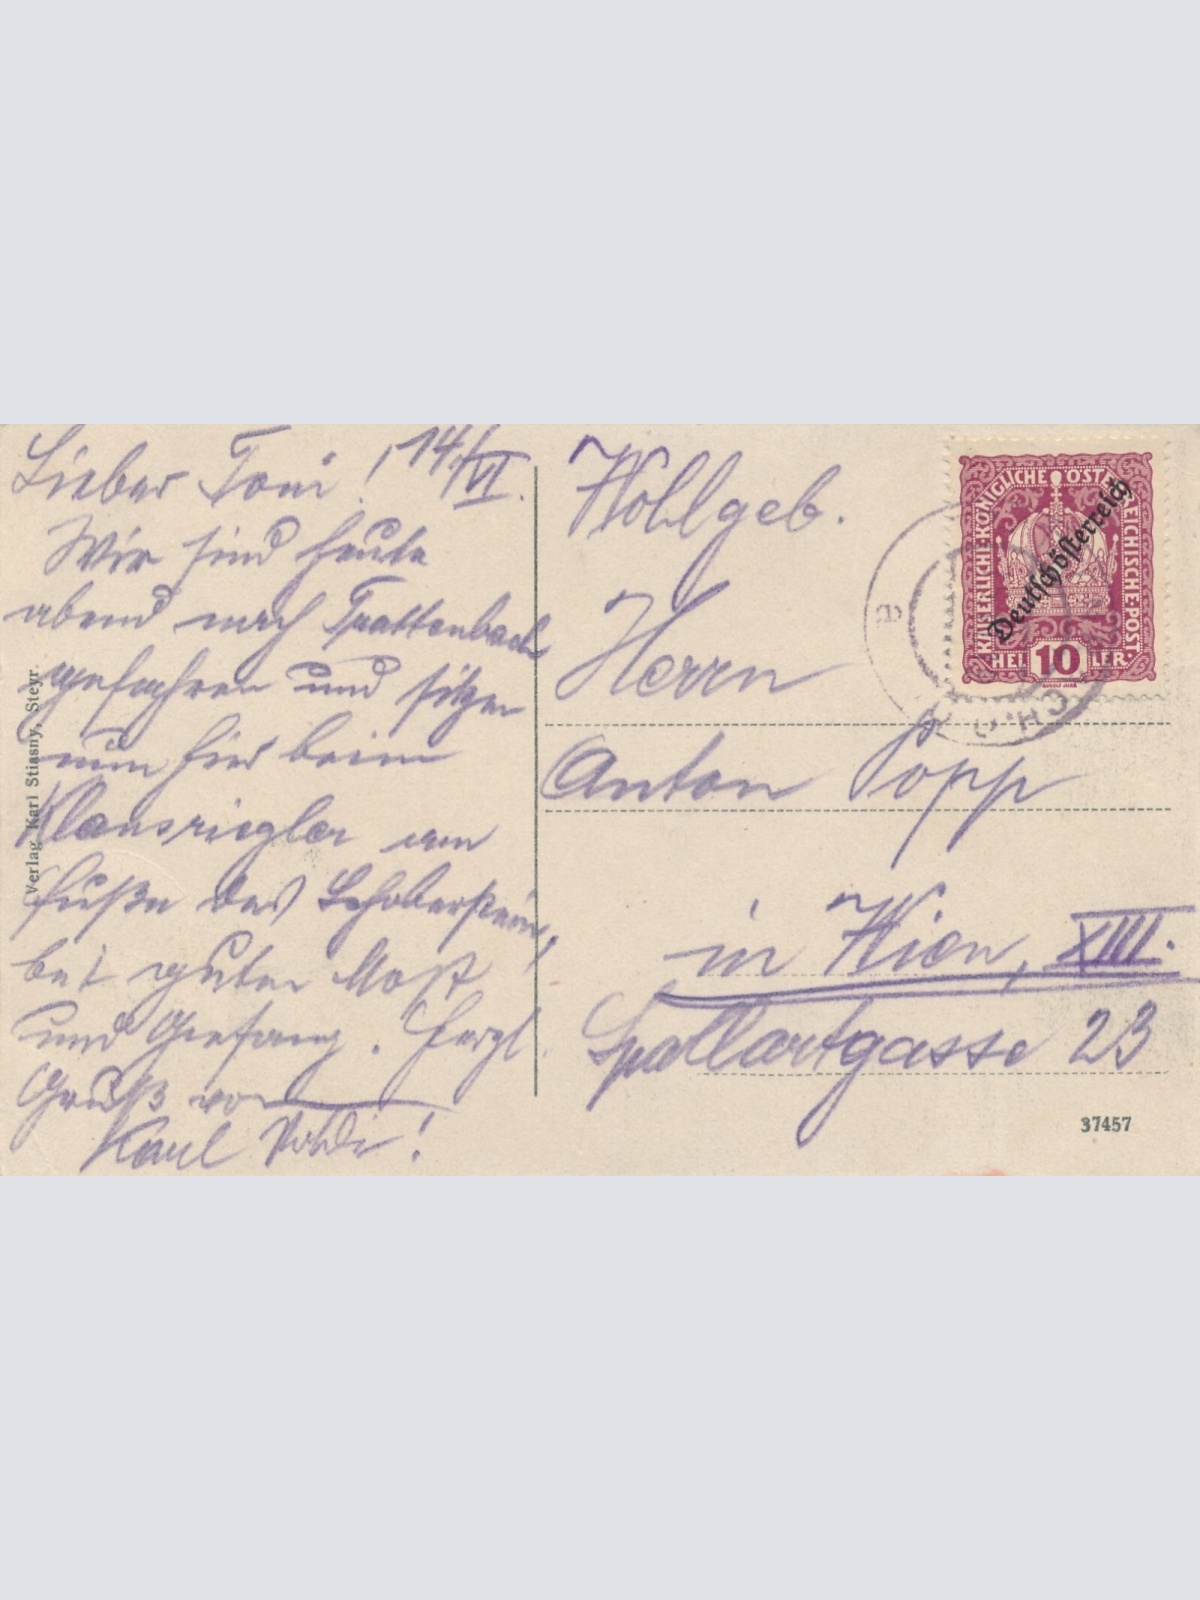 Lieber Toni! 14./VI.
Wir sind heute
abend nach Trattenbach
gefahren und sitzen
nun hier beim
Klausriegler am
Fuße des Schobersteins,
bei guten Most
und Gesang. Herzl.
Gruß von
Karl
Verlag Karl Stiasny, Steyr.
Wohlgeb.
Herrn
Anton Popp
in Wien, XIII.
Spallartgasse 23
37457
KAISERLICHE·KÖNIGLICHE ÖSTERREICHISCHE·POST·
Deutschösterreich
10
HELLER